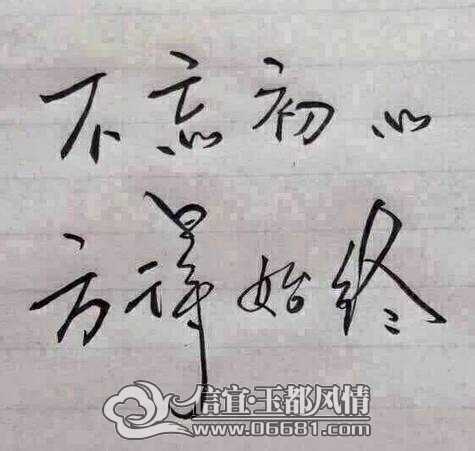 不忘初心
方得始终
信宜·玉都风情
www.06681.com